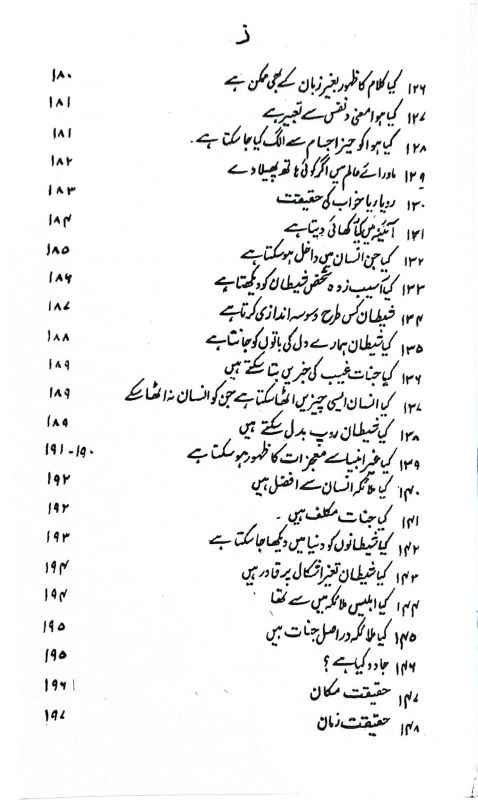 ز
۱۲۶ کیا کلام کا ظہور بغیر زبان کے بھی ممکن ہے ۱۸۰
۱۲۷ کیا ہوا معنی و نفس سے تعبیر ہے ۱۸۱
۱۲۸ کیا ہوا کو حیز اجسام سے الگ کیا جا سکتا ہے۔ ۱۸۱
۱۲۹ ماورائے عالم میں اگر کوئی ہاتھ پھیلا دے ۱۸۲
۱۳۰ رویا یا خواب کی حقیقت ۱۸۳
۱۳۱ آئینہ میں کیا دکھائی دیتا ہے ۱۸۴
۱۳۲ کیا جن انسان میں داخل ہو سکتا ہے ۱۸۵
۱۳۳ کیا آسیب زدہ شخص شیطان کو دیکھتا ہے ۱۸۶
۱۳۴ شیطان کس طرح وسوسہ اندازی کرتا ہے ۱۸۷
۱۳۵ کیا شیطان ہمارے دل کی باتوں کو جانتا ہے ۱۸۸
۱۳۶ کیا جنات غیب کی خبریں بتا سکتے ہیں ۱۸۹
۱۳۷ کیا انسان ایسی چیزیں اٹھا سکتا ہے جن کو انسان نہ اٹھا سکے ۱۸۹
۱۳۸ کیا شیطان روپ بدل سکتے ہیں ۱۸۹
۱۳۹ کیا غیر انبیا سے معجزات کا ظہور ہو سکتا ہے ۱۹۰-۱۹۱
۱۴۰ کیا ملائکہ انسان سے افضل ہیں ۱۹۲
۱۴۱ کیا جنات مکلف ہیں۔ ۱۹۲
۱۴۲ کیا شیطانوں کو دنیا میں دیکھا جا سکتا ہے ۱۹۳
۱۴۳ کیا شیطان تغیر اشکال پر قادر ہیں ۱۹۴
۱۴۴ کیا ابلیس ملائکہ میں سے تھا ۱۹۴
۱۴۵ کیا ملائکہ دراصل جنات ہیں ۱۹۵
۱۴۶ جادو کیا ہے؟ ۱۹۵
۱۴۷ حقیقت مکان ۱۹۶
۱۴۸ حقیقت زمان ۱۹۷